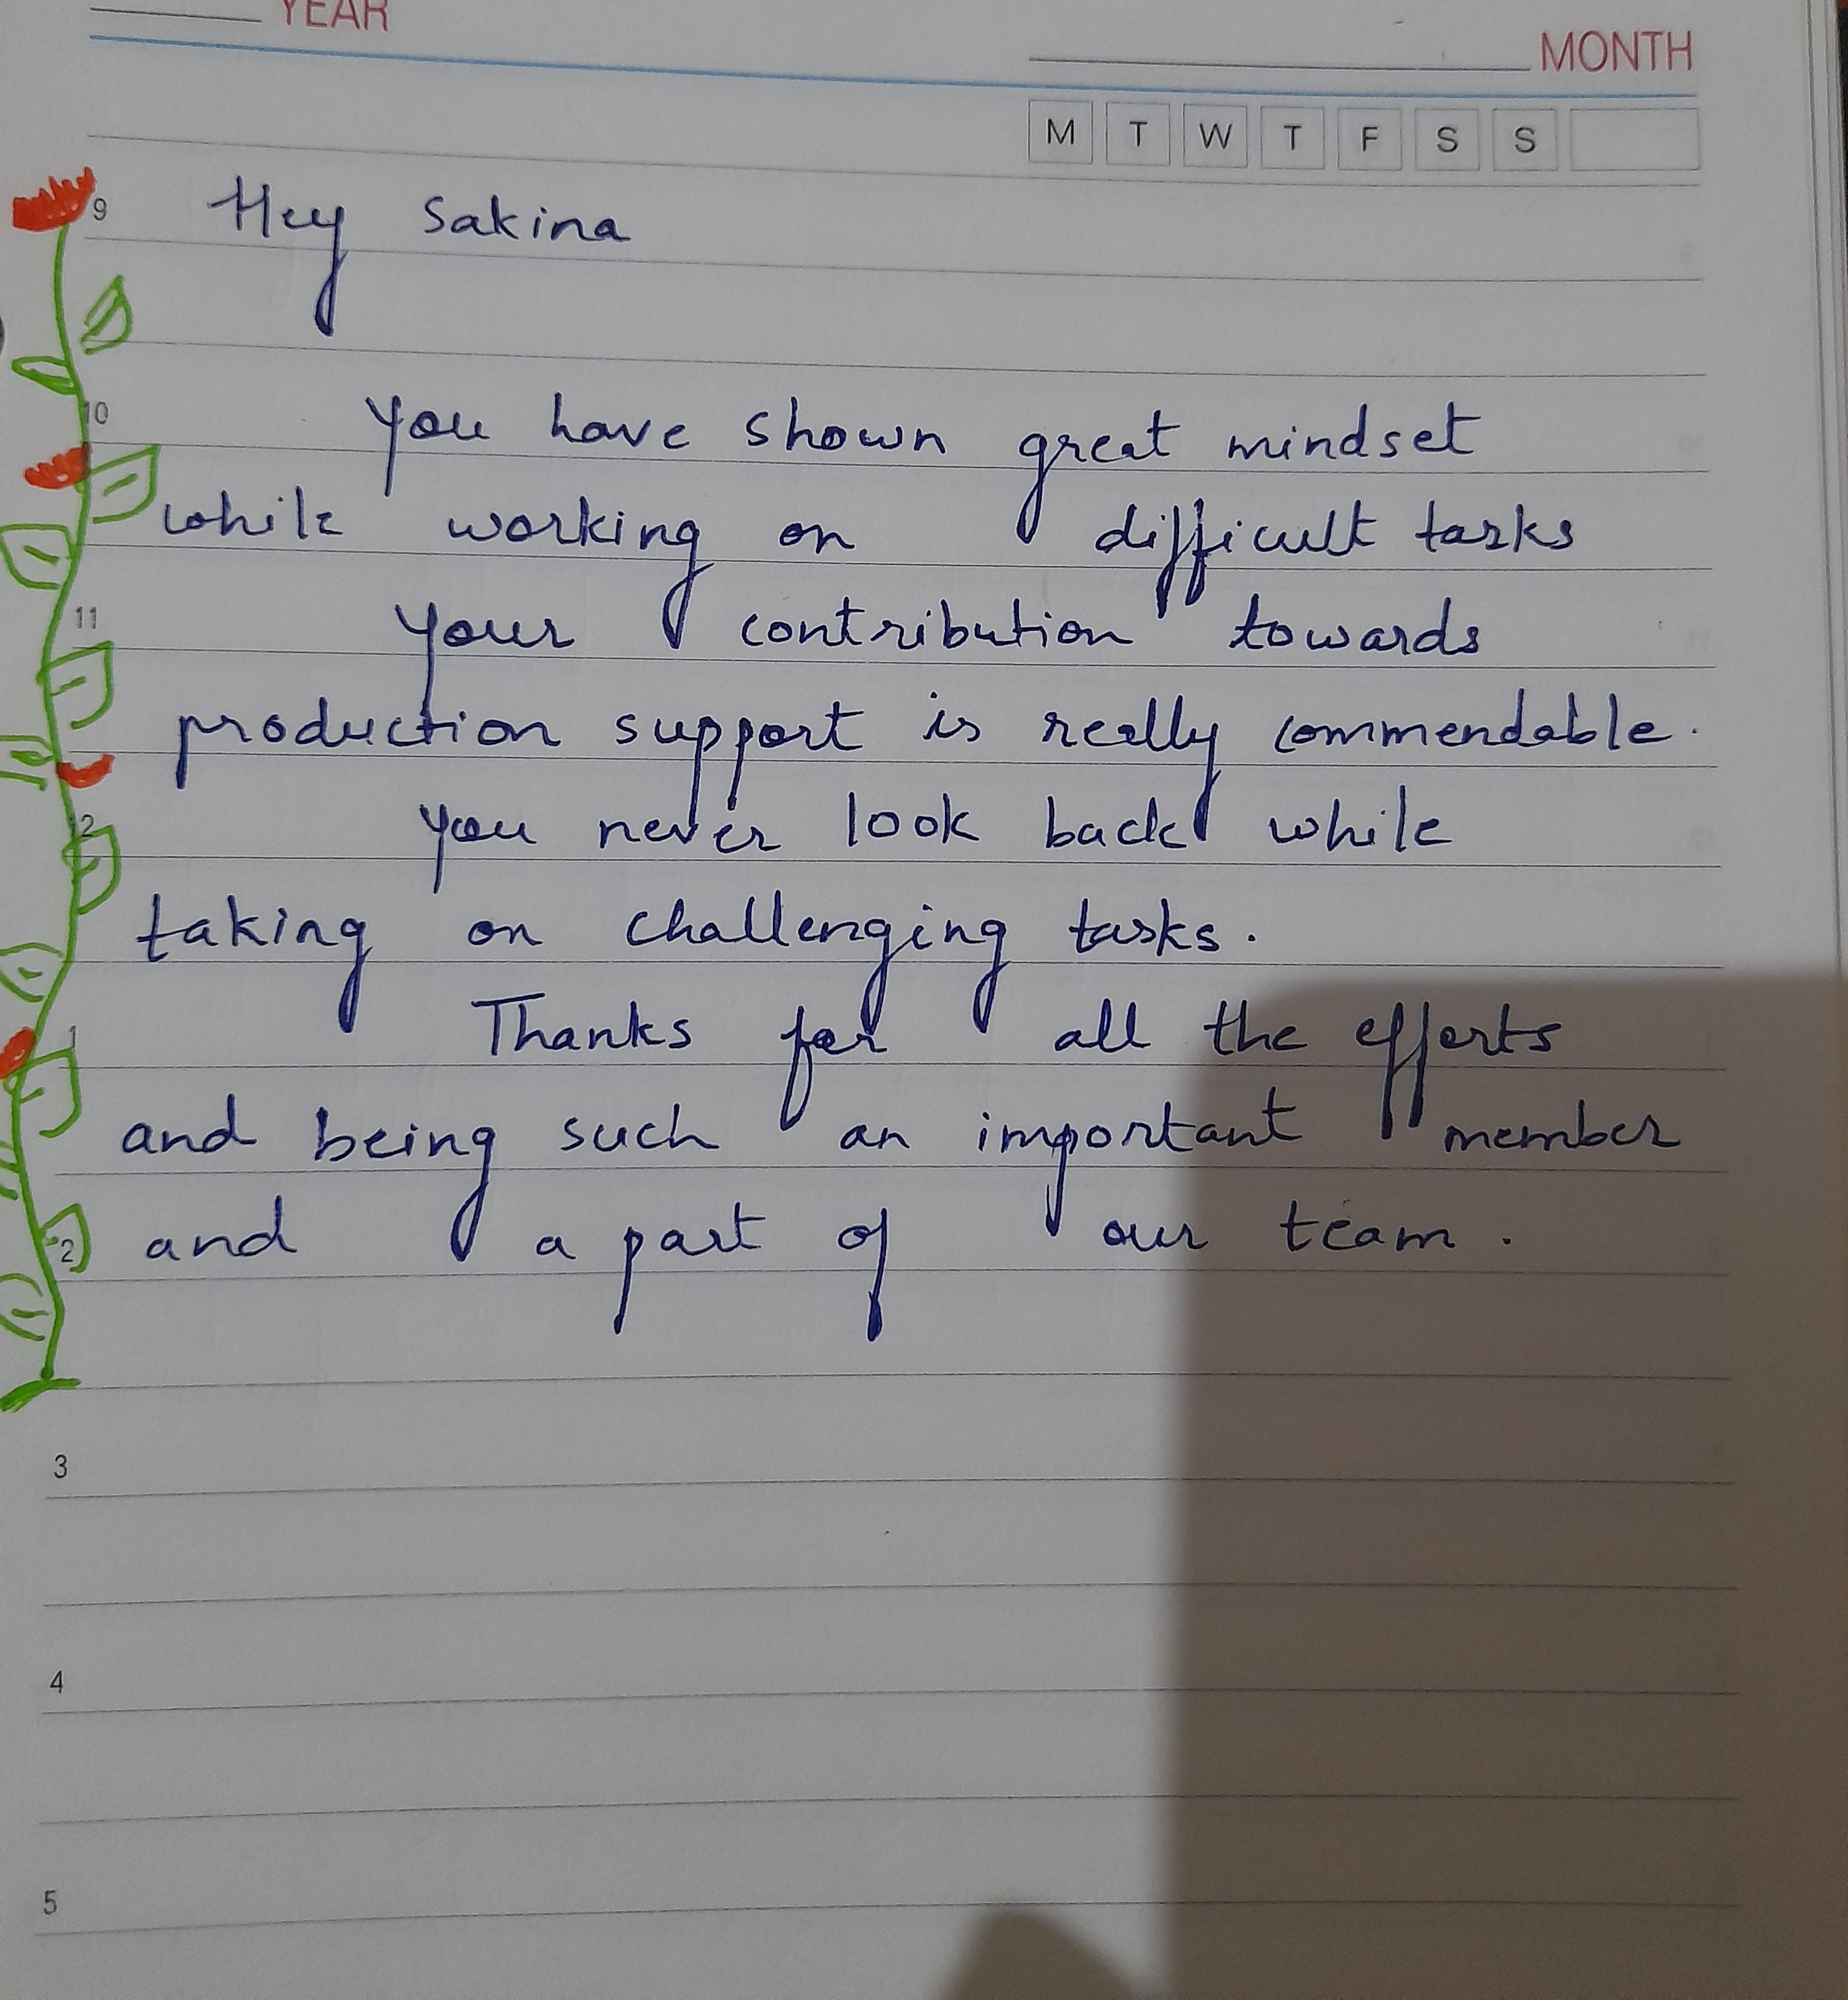 YEAR
MONTH
M T W T F S S
9 Hey Sakina
10
You have shown great mindset
while working on difficult tasks
11 Your contribution towards
production support is really commendable.
12 You never look back while
taking on challenging tasks.
1 Thanks for all the efforts
and being such an important member
2 and a part of our team.
3
4
5